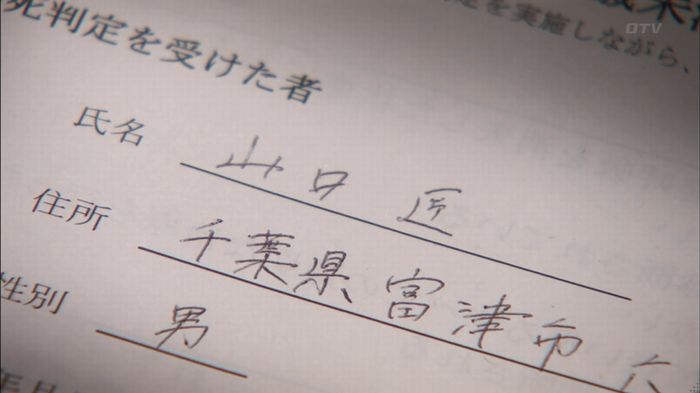 を実施しながら、
死判定を受けた者
氏名 山口 匠
住所 千葉県富津市
性別 男